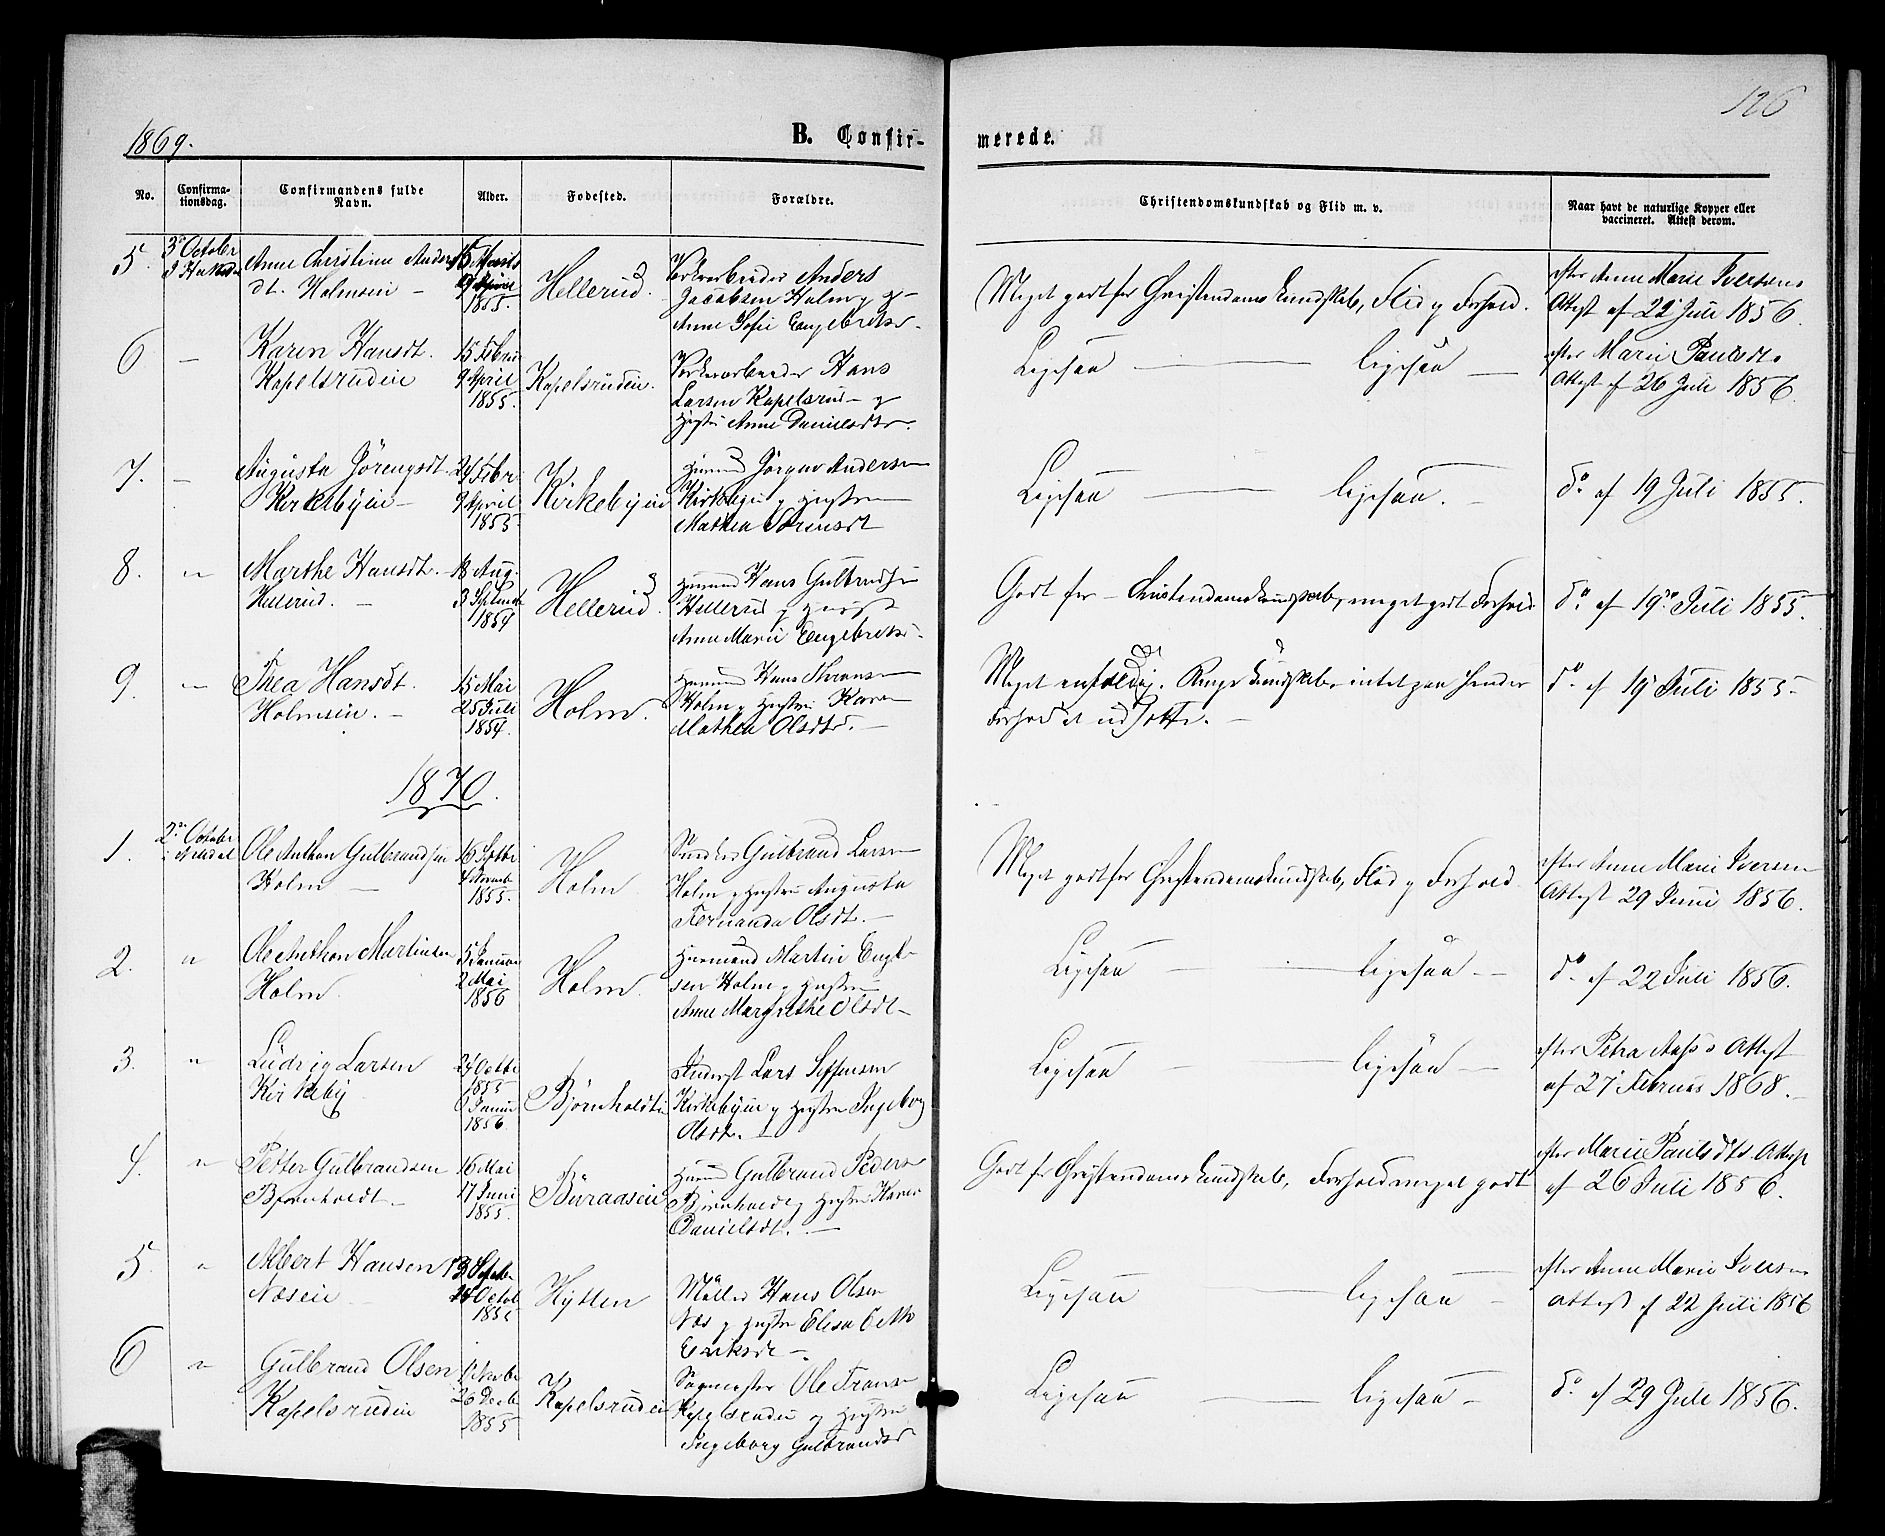 126
1869.
B. Confir-
merede.
No.
Confirma-
tionsdag.
Confirmandens fulde
Navn.
Alder.
Fodested.
Forældre.
Christendomskundskab og Flid m. v.
Naar havt de naturlige Kopper eller
vaccineret. Attest derom.
5.
3de October
Anne Christine Anders
dt. Holmsein
15 Marts
9 April
1855.
Hellerud.
Anders
Jacobsen Holm og
Anne Sofie Engebretsd.
Meget godt for Christendomskundskab, Flid og Forhold.
efter Anne Marie Iversens
Attest af 22 Juli 1856.
6 –
Karen Hansdt.
Kapelsrudein
15 Febru
9 April
1855.
Kapelsrudein.
Hans
Larsen Kapelsrud og
Hustru Anne Danielsdtr.
Ligesaa — ligesaa —
efter Marie Paulsdts
Attest af 26 Juli 1856.
7. –
Augusta Jörgensdt.
Kirkebyein
24 Febr.
9 April
1855.
Kirkebyein
Huusmand Jörgen Andersen
Kirkebyein og Hustru
Mathea Sörensdt
Ligesaa — ligesaa. —
do af 19 Juli 1855.
8. "
Marthe Hansdt.
Hellerud. –
18 Aug.
3 Septemb
1854
Hellerud.
Huusmand Hans Gulbrandsen
Hellerud og Hustru
Anne Marie Engebretsd.
Godt for Christendomskundskab, meget godt Forhold
do af 19de Juli 1855.
9. "
Thea Hansdt.
Holmsein. –
15 Mai
25 Juli
1854.
Holm.
Huusmand Hans
Holm og Hustru Karen
Mathea Olsdtr. –
Meget enfoldig. Ringe Kundskab, intet paa hendes
Forhold at udsætte. –
do af 19 Juli 1855
1870.
1.
2den October
Ole Anthon Gulbrandsen
Holm –
16 Septbr
4 Novemb
1855.
Holm
Gulbrand Larsen
Holm og Hustru Augusta
Fernanda Olsdt. –
Meget godt for Christendomskundskab, Flid og Forhold
efter Anne Marie Iversen
Attest 29 Juni 1856.
2. "
Ole Anthon Martinsen
Holm.
5 Januar
2 Mai
1856
Holm.
Huusmand Martin Engebr
sen Holm og Hustru
Anne Margrethe Olsdt –
Ligesaa — ligesaa —
do af 22 Juli 1856.
3. "
Ludvig Larsen
Kirkeby
24 Octbr
1855
6 Januar
1856.
Björnholdt
Lars Steffensen
Kirkebyein og Hustru Ingeborg
Olsdt. –
Ligesaa — ligesaa —
efter Petra Attest
af 27 Februar 1868.
4. "
Petter Gulbrandsen
Björnholdt –
16 Mai
17 Juni
1855.
Buraasein
Huusmand Gulbrand Peders
Björnholdt og Hustru Karen
Danielsdt. –
Godt for Christendomskundskab, Forhold meget godt
efter Marie Paulsdts. Attest
af 26 Juli 1856.
5. "
Albert Hansen
Næsein –
13 Septbr
14 Octob
1855
Hytten
Möller Hans Olsen
Næs og Hustru Elisabeth
Eriksdt –
Ligesaa — ligesaa —
efter Anne Marie Iversen
Attest af 22 Juli 1856
6 "
Gulbrand Olsen
Kapelsrudein
26 Decb
1855
Kapelsrudein
Sagmester Ole Frans
Kapelsrudein og Hustru
Ingeborg Gulbrandsd
Ligesaa — ligesaa —
do af 29 Juli 1856.